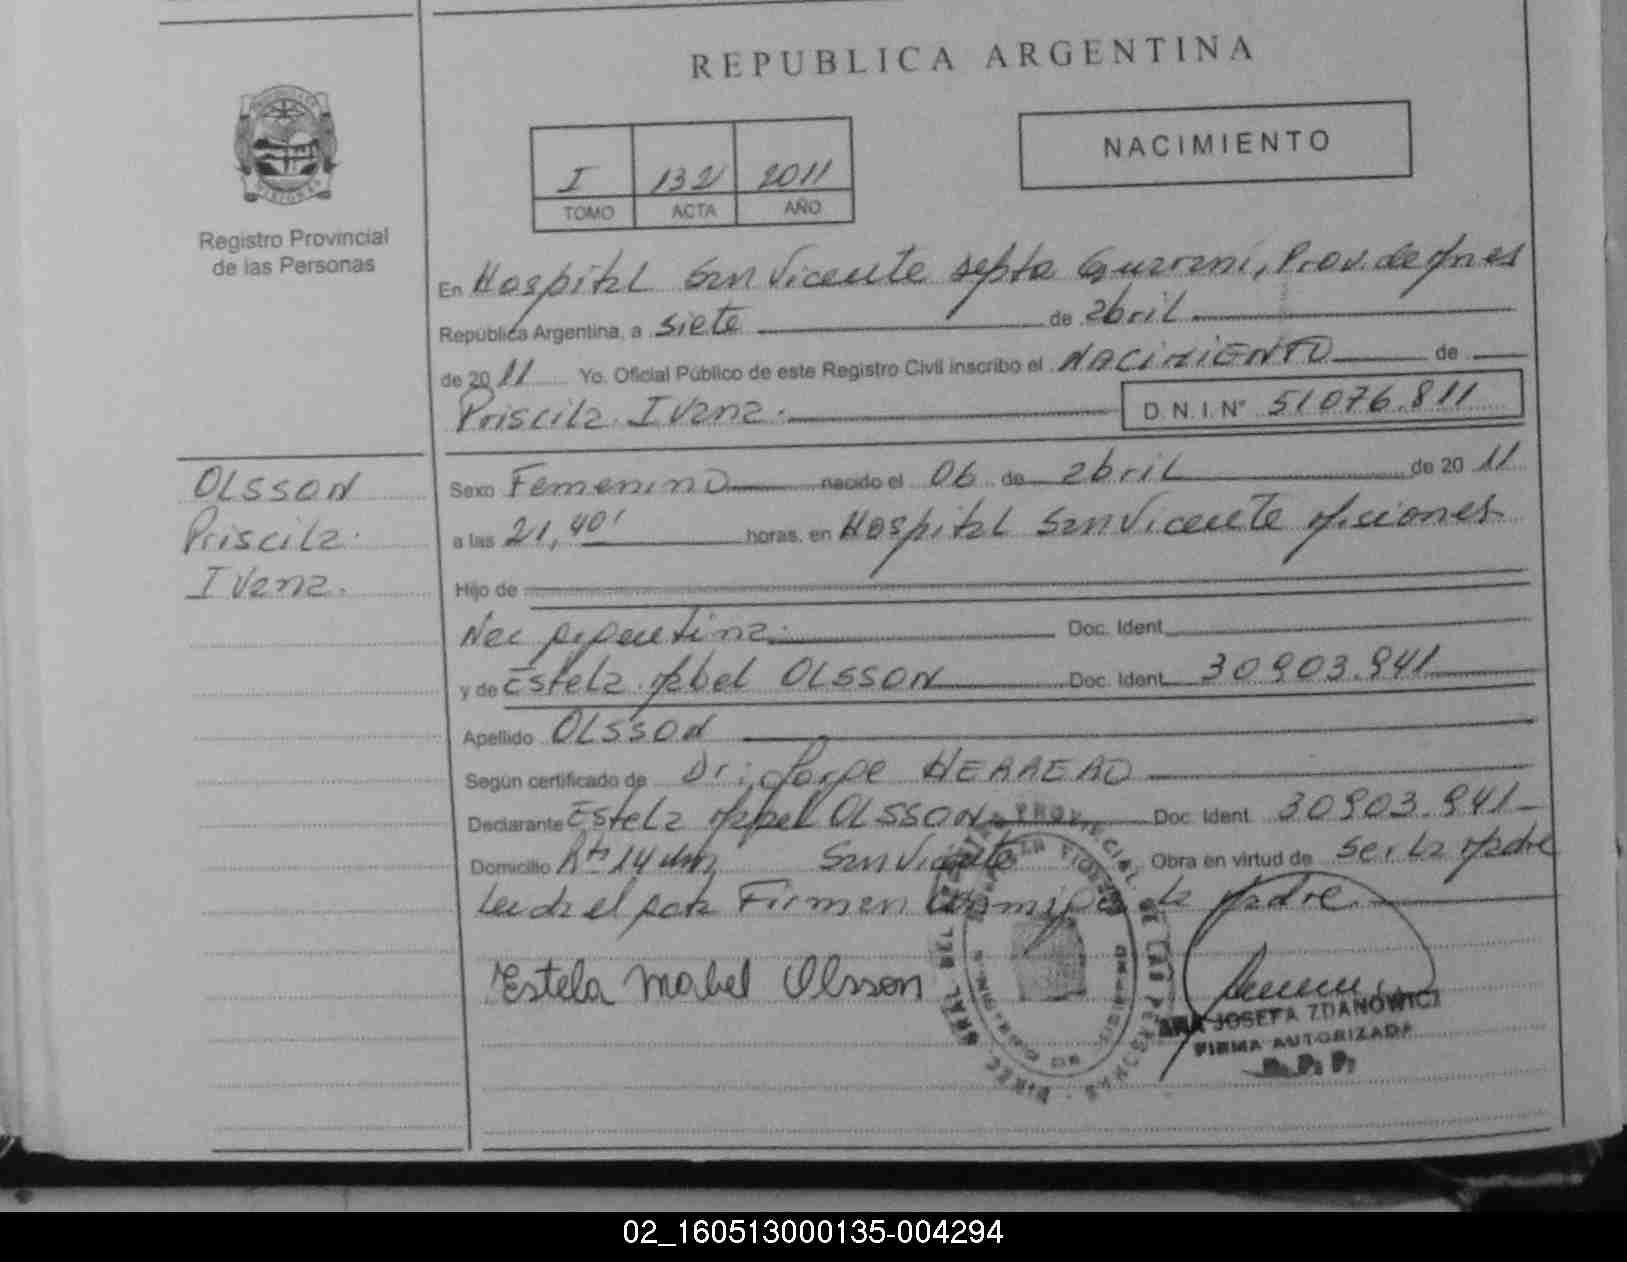 REPUBLICA ARGENTINA
NACIMIENTO
I 132 2011
TOMO ACTA AÑO
Registro Provincial
de las Personas
En Hospital San Vicente depto Guarani, Prov. de Mnes
República Argentina, a siete de abril
de 2011 Yo, Oficial Público de este Registro Civil inscribo el NACIMIENTO de
Priscila Ivana. D.N.I.Nº 51076.811
OLSSON
Priscila.
Ivana.
Sexo Femenino nacido el 06 de abril de 2011
a las 21,40' horas, en Hospital San Vicente Misiones
Hijo de
Nac Argentina. Doc. Ident.
y de Estela Mabel OLSSON Doc. Ident. 30903.941
Apellido OLSSON
Según certificado de Dr: Jorge HERRERO
Declarante Estela Mabel OLSSON Doc. Ident. 30903.941
Domicilio San Vicente Obra en virtud de ser la Madre
Leida el acta Firman conmigo la Madre.
Estela Mabel Olsson
JOSEFA ZDANOWICZ
FIRMA AUTORIZADA
02_160513000135-004294